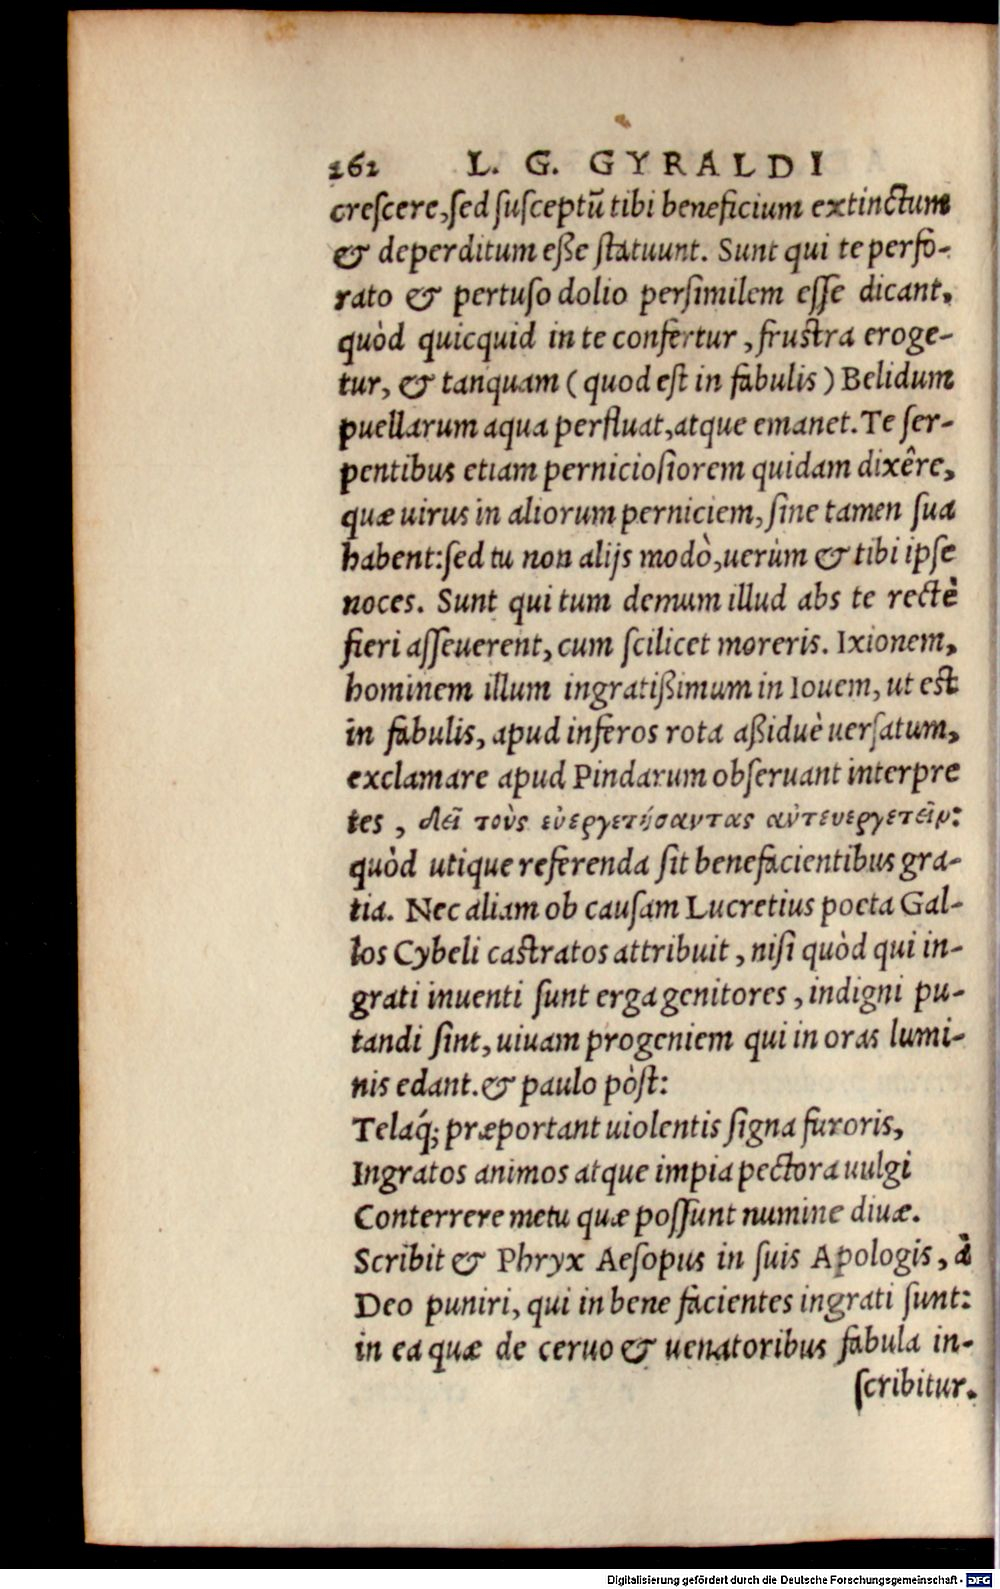 262 L. G. GYRALDI
creſcere, ſed ſuſceptũ tibi beneficium extinctum
& deperditum eße ſtatuunt. Sunt qui te perfo-
rato & pertuſo dolio perſimilem eſſe dicant,
quòd quicquid in te confertur, fruſtra eroge-
tur, & tanquam (quod eſt in fabulis) Belidum
puellarum aqua perfluat, atque emanet. Te ſer-
pentibus etiam pernicioſiorem quidam dixêre,
quæ uirus in aliorum perniciem, ſine tamen ſua
habent: ſed tu non alijs modò, uerùm & tibi ipſe
noces. Sunt qui tum demum illud abs te rectè
fieri aſſeuerent, cum ſcilicet moreris. Ixionem,
hominem illum ingratißimum in Iouem, ut eſt
in fabulis, apud inferos rota aßiduè uerſatum,
exclamare apud Pindarum obſeruant interpre
tes, δεῖ τοὺς εὐεργετήσαντας αὐτευεργετεῖν:
quòd utique referenda ſit benefacientibus gra-
tia. Nec aliam ob cauſam Lucretius poeta Gal-
los Cybeli caſtratos attribuit, niſi quòd qui in-
grati inuenti ſunt erga genitores, indigni pu-
tandi ſint, uiuam progeniem qui in oras lumi-
nis edant. & paulo pòſt:
Telaq́; præportant uiolentis ſigna furoris,
Ingratos animos atque impia pectora uulgi
Conterrere metu quæ poſſunt numine diuæ.
Scribit & Phryx Aeſopus in ſuis Apologis, à
Deo puniri, qui in bene facientes ingrati ſunt:
in ea quæ de ceruo & uenatoribus fabula in-
ſcribitur.
Digitalisierung gefördert durch die Deutsche Forschungsgemeinschaft - DFG